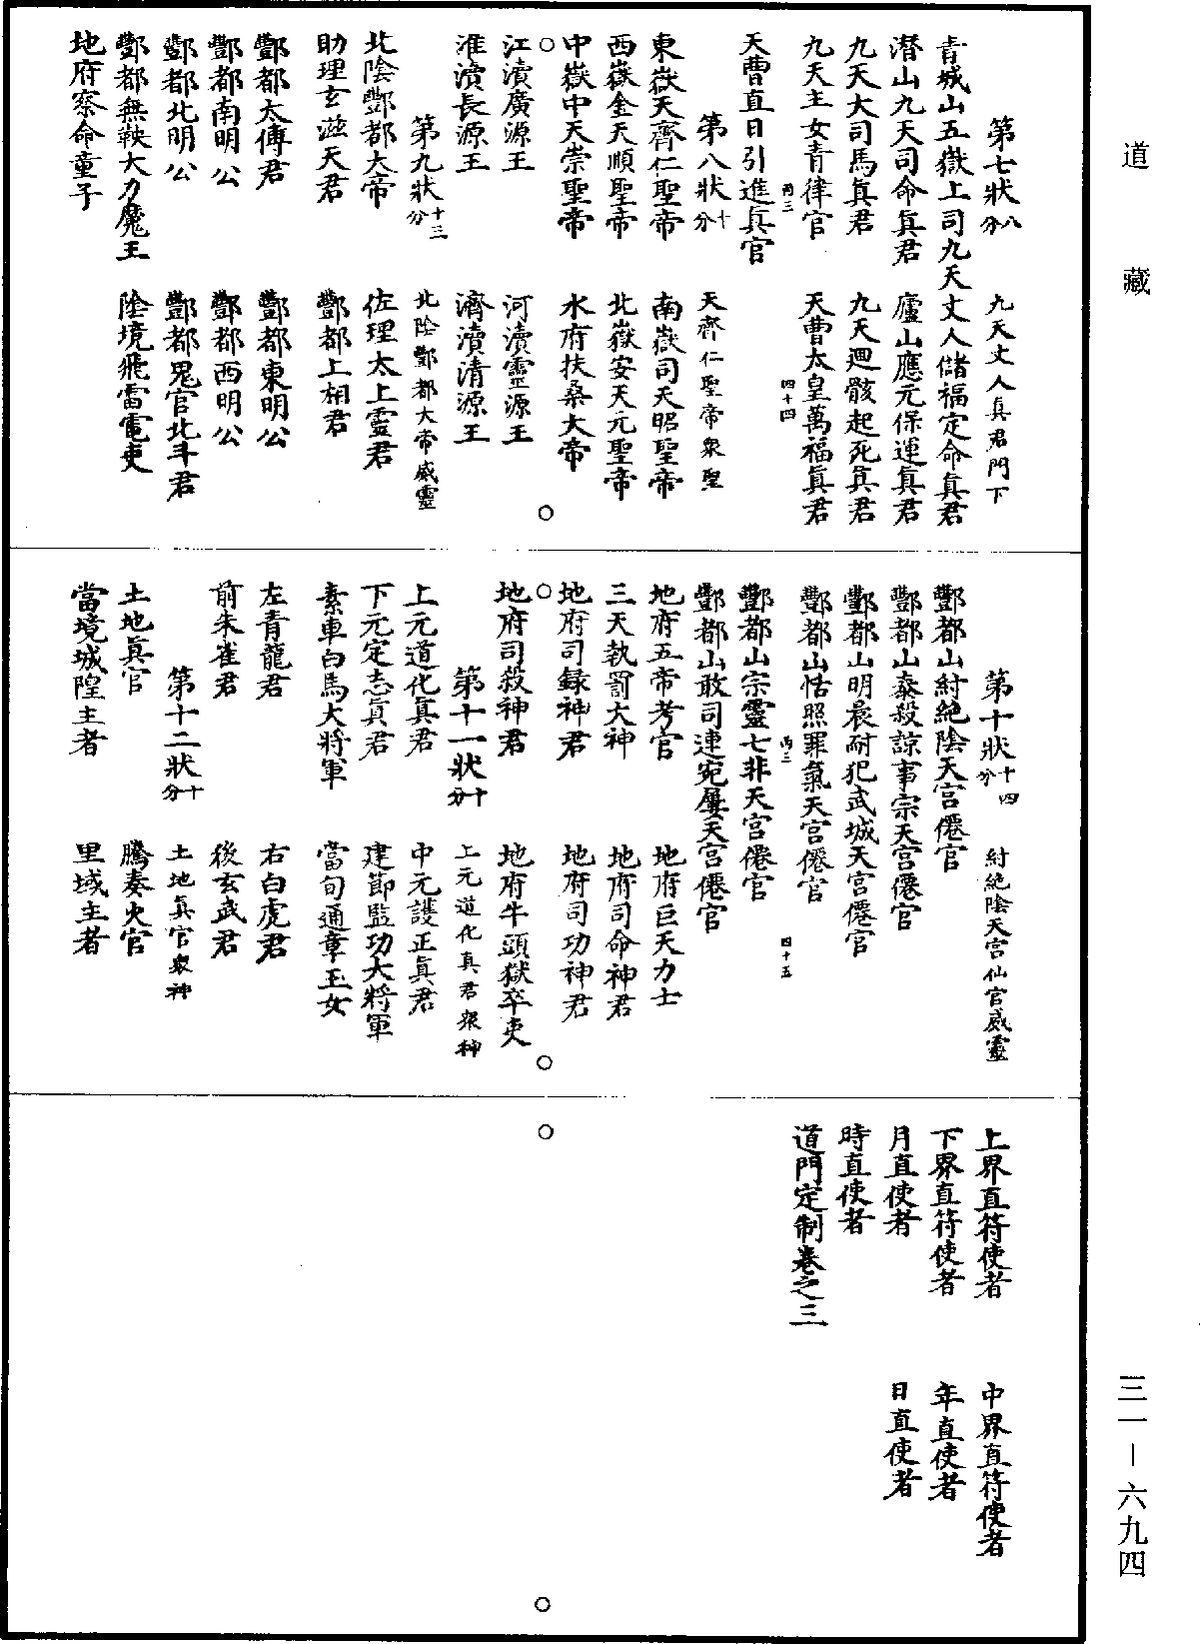 道　藏
第七狀八分　九天丈人眞君門下
青城山五嶽上司九天丈人儲福定命眞君
潛山九天司命眞君　廬山應元保運眞君
九天大司馬眞君　九天迴骸起死眞君
九天主女青律官　天曹太皇萬福眞君
丙三　四十四
天曹直日引進眞官
第八狀十分　天齊仁聖帝衆聖
東嶽天齊仁聖帝　南嶽司天昭聖帝
西嶽金天順聖帝　北嶽安天元聖帝
中嶽中天崇聖帝　水府扶桑大帝
江瀆廣源王　河瀆靈源王
淮瀆長源王　濟瀆清源王
第九狀十三分　北陰酆都大帝威靈
北陰酆都大帝　佐理太上靈君
助理玄滋天君　酆都上相君
酆都太傅君　酆都東明公
酆都南明公　酆都西明公
酆都北明公　酆都鬼官北斗君
酆都無鞅大力魔王　陰境飛雷電吏
地府察命童子
第十狀十四分　紂絕陰天宮仙官威靈
酆都山紂絕陰天宮僊官
酆都山泰殺諒事宗天宮僊官
酆都山明晨耐犯武城天宮僊官
酆都山恬照罪氣天宮僊官
丙三　四十五
酆都山宗靈七非天宮僊官
酆都山敢司連宛屢天宮僊官
地府五帝考官　地府巨天力士
三天執罰大神　地府司命神君
地府司錄神君　地府司功神君
地府司殺神君　地府牛頭獄卒吏
第十一狀十分　上元道化眞君衆神
上元道化眞君　中元護正眞君
下元定志眞君　建節監功大將軍
素車白馬大將軍　當旬通章玉女
左青龍君　右白虎君
前朱雀君　後玄武君
第十二狀十分　土地眞官衆神
土地眞官　騰奏火官
當境城隍主者　里域主者
上界直符使者　中界直符使者
下界直符使者　年直使者
月直使者　日直使者
時直使者
道門定制卷之三
三一－六九四